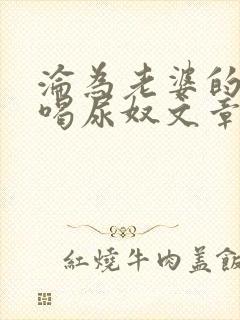 淪為老婆的
喝尿奴文章
紅燒牛肉蓋飯